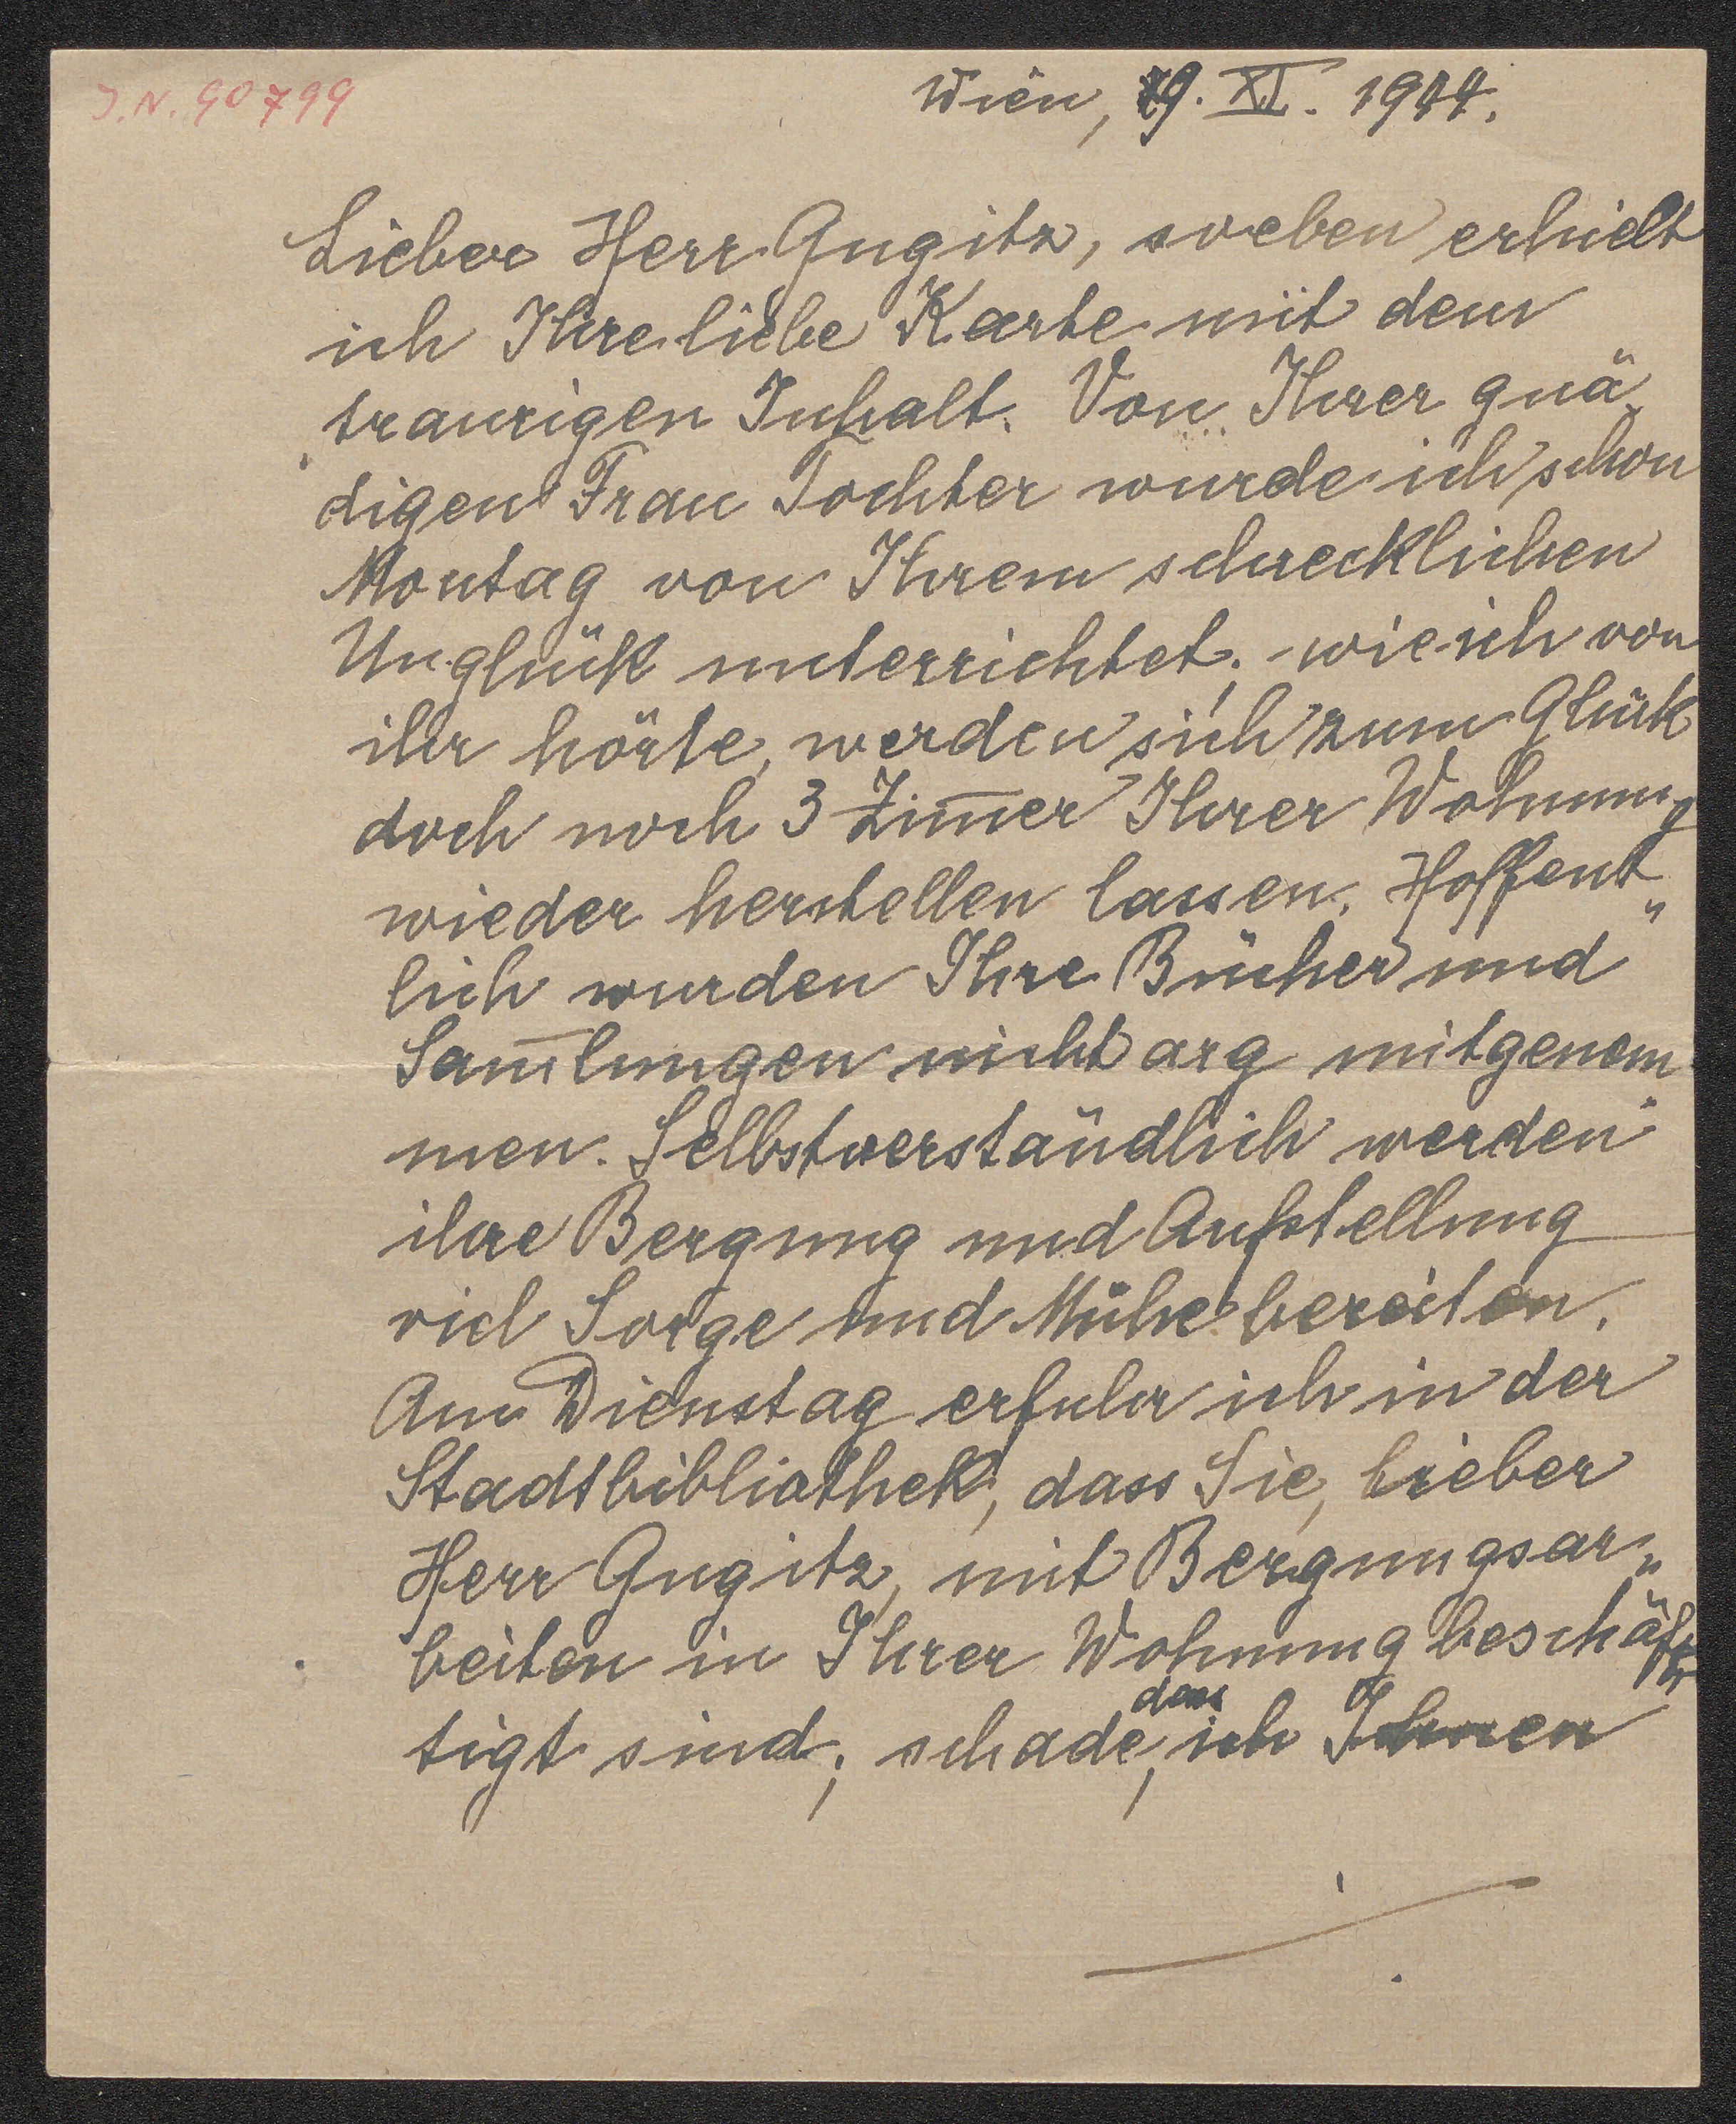 J.N. 90799
Wien, 9. XI. 1944.
Lieber Herr Gugitz, soeben erhielt
ich Ihre liebe Karte mit dem
traurigen Inhalt. Von Ihrer gnä„
digen Frau Tochter wurde ich schon
Montag von Ihrem schrecklichen
Unglück unterrichtet; wie ich von
ihr hörte, werden sich zum Glück
doch noch 3 Zim̅er Ihrer Wohnung
wieder herstellen lassen. Hoffent„
lich wurden Ihre Bücher und
Sam̅lungen nicht arg mitgenom„
men. Selbstverständlich werden
ihre Bergung und Aufstellung
viel Sorge und Mühe bereiten.
Am Dienstag erfuhr ich in der
Stadtbibliothek, dass Sie, lieber
Herr Gugitz, mit Bergungsar„
beiten in Ihrer Wohnung beschäf„
tigt sind; schade, dass ich Ihnen